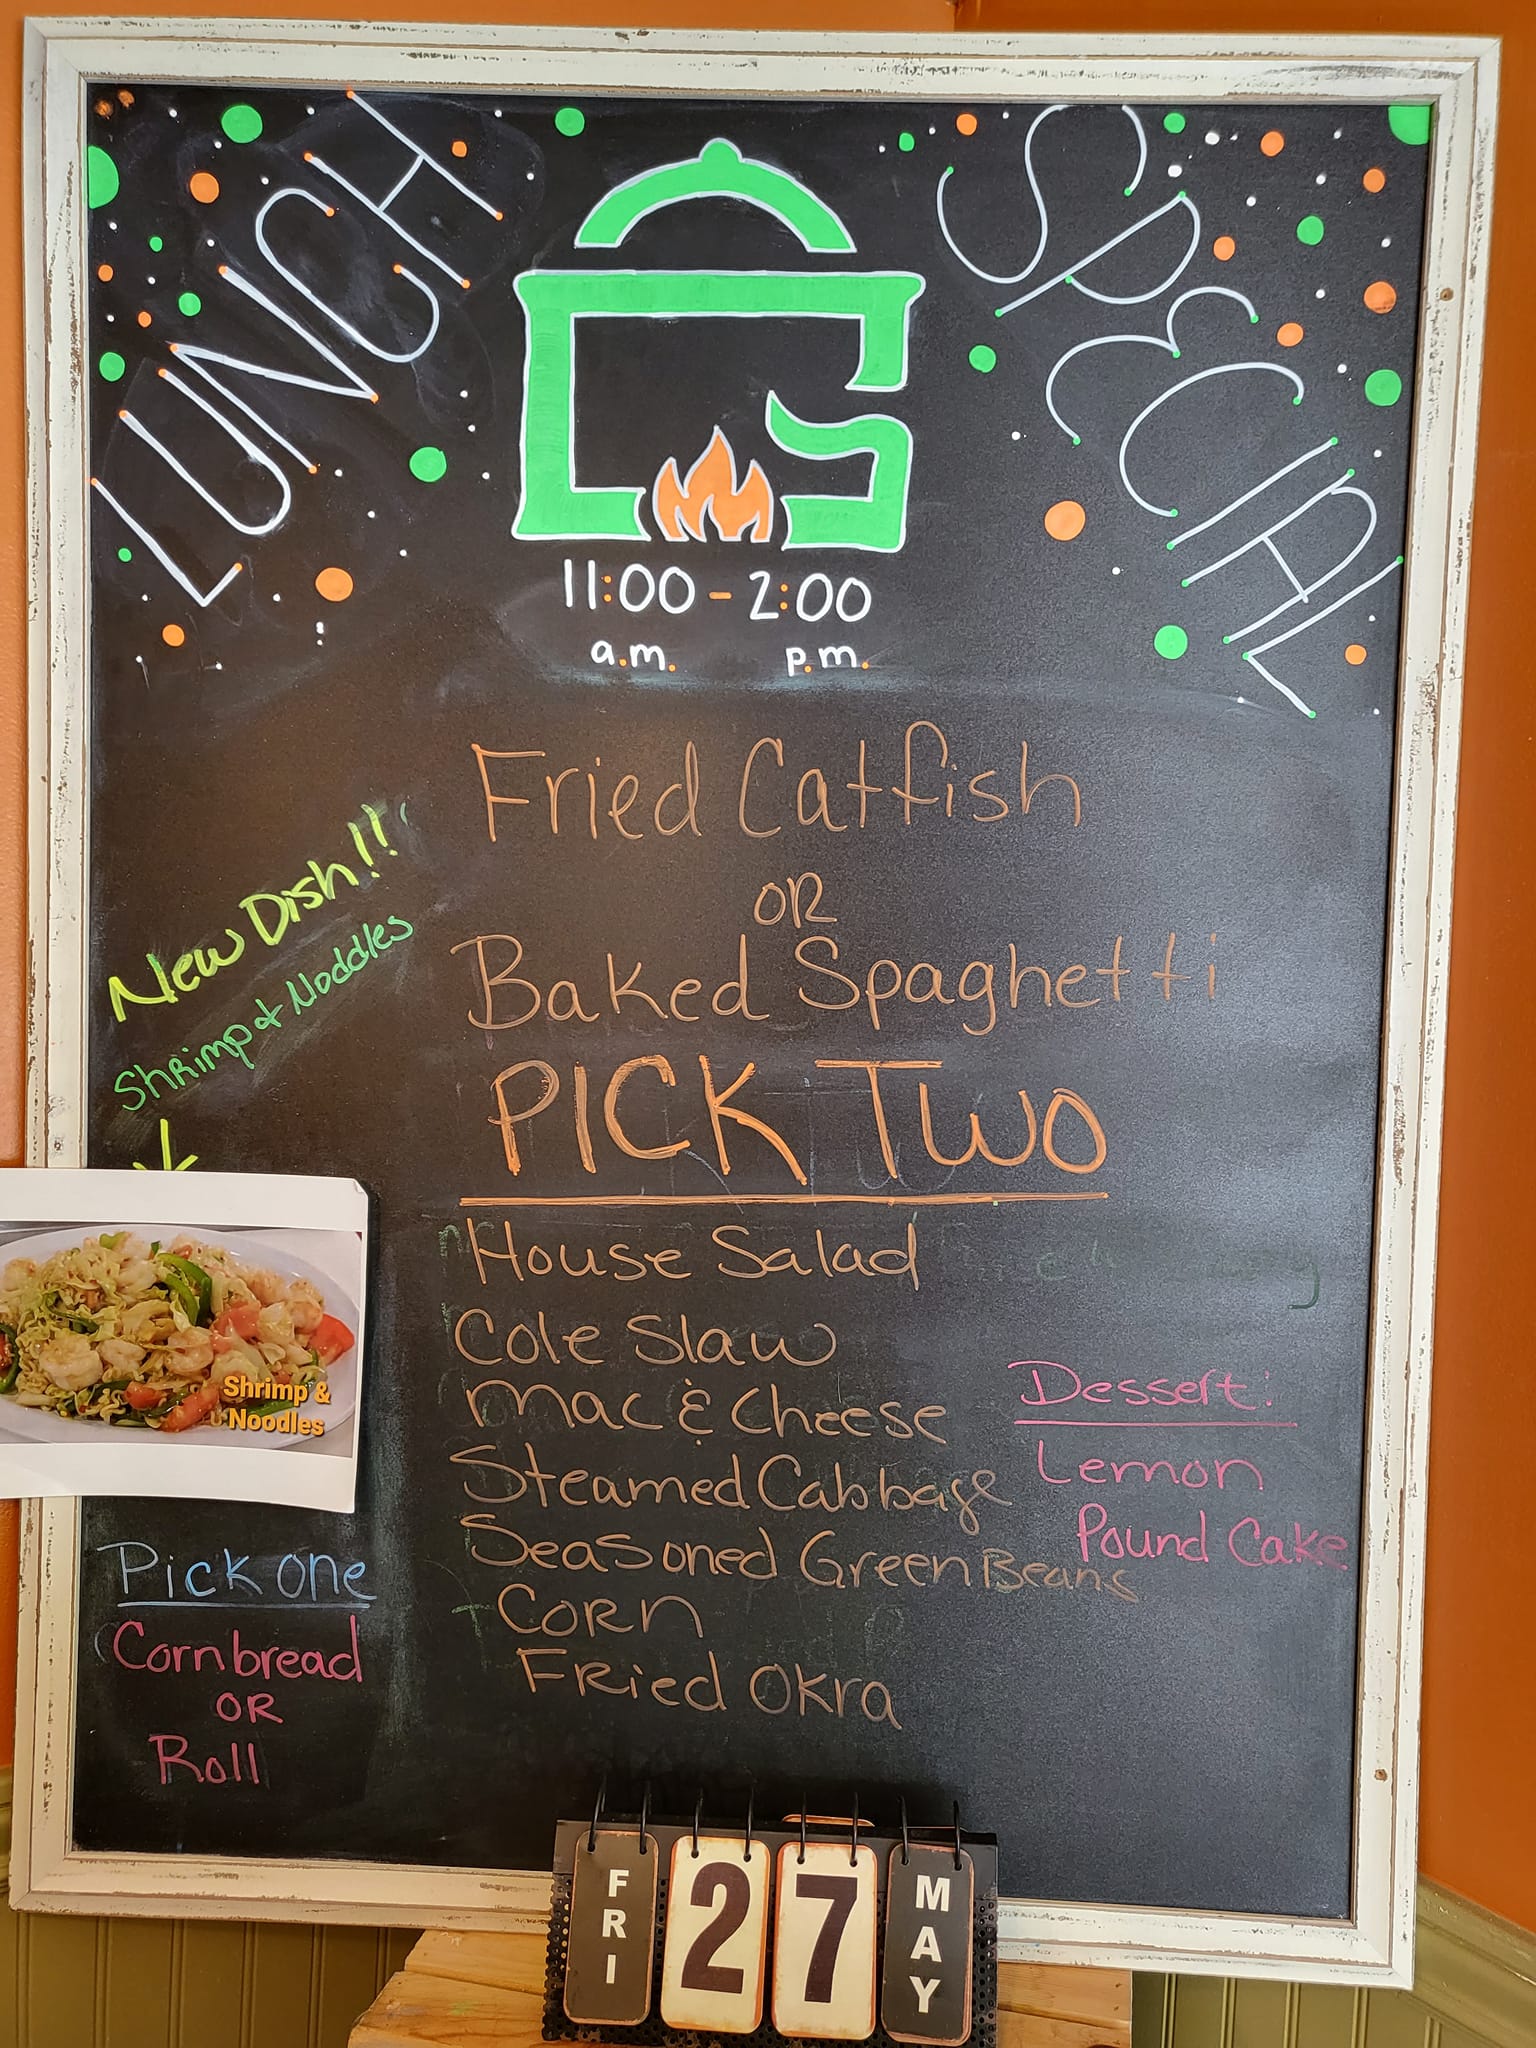 LUNCH
SPECIAL
11:00 - 2:00
a.m. p.m.
Fried Catfish
OR
Baked Spaghetti
PICK TWO
House Salad
Cole Slaw
Mac & Cheese
Steamed Cabbage
Seasoned Green Beans
Corn
Fried Okra
New Dish!!
Shrimp & Noddles
Shrimp &
Noodles
Pick one
Cornbread
OR
Roll
Dessert:
Lemon
Pound Cake
FRI 27 MAY